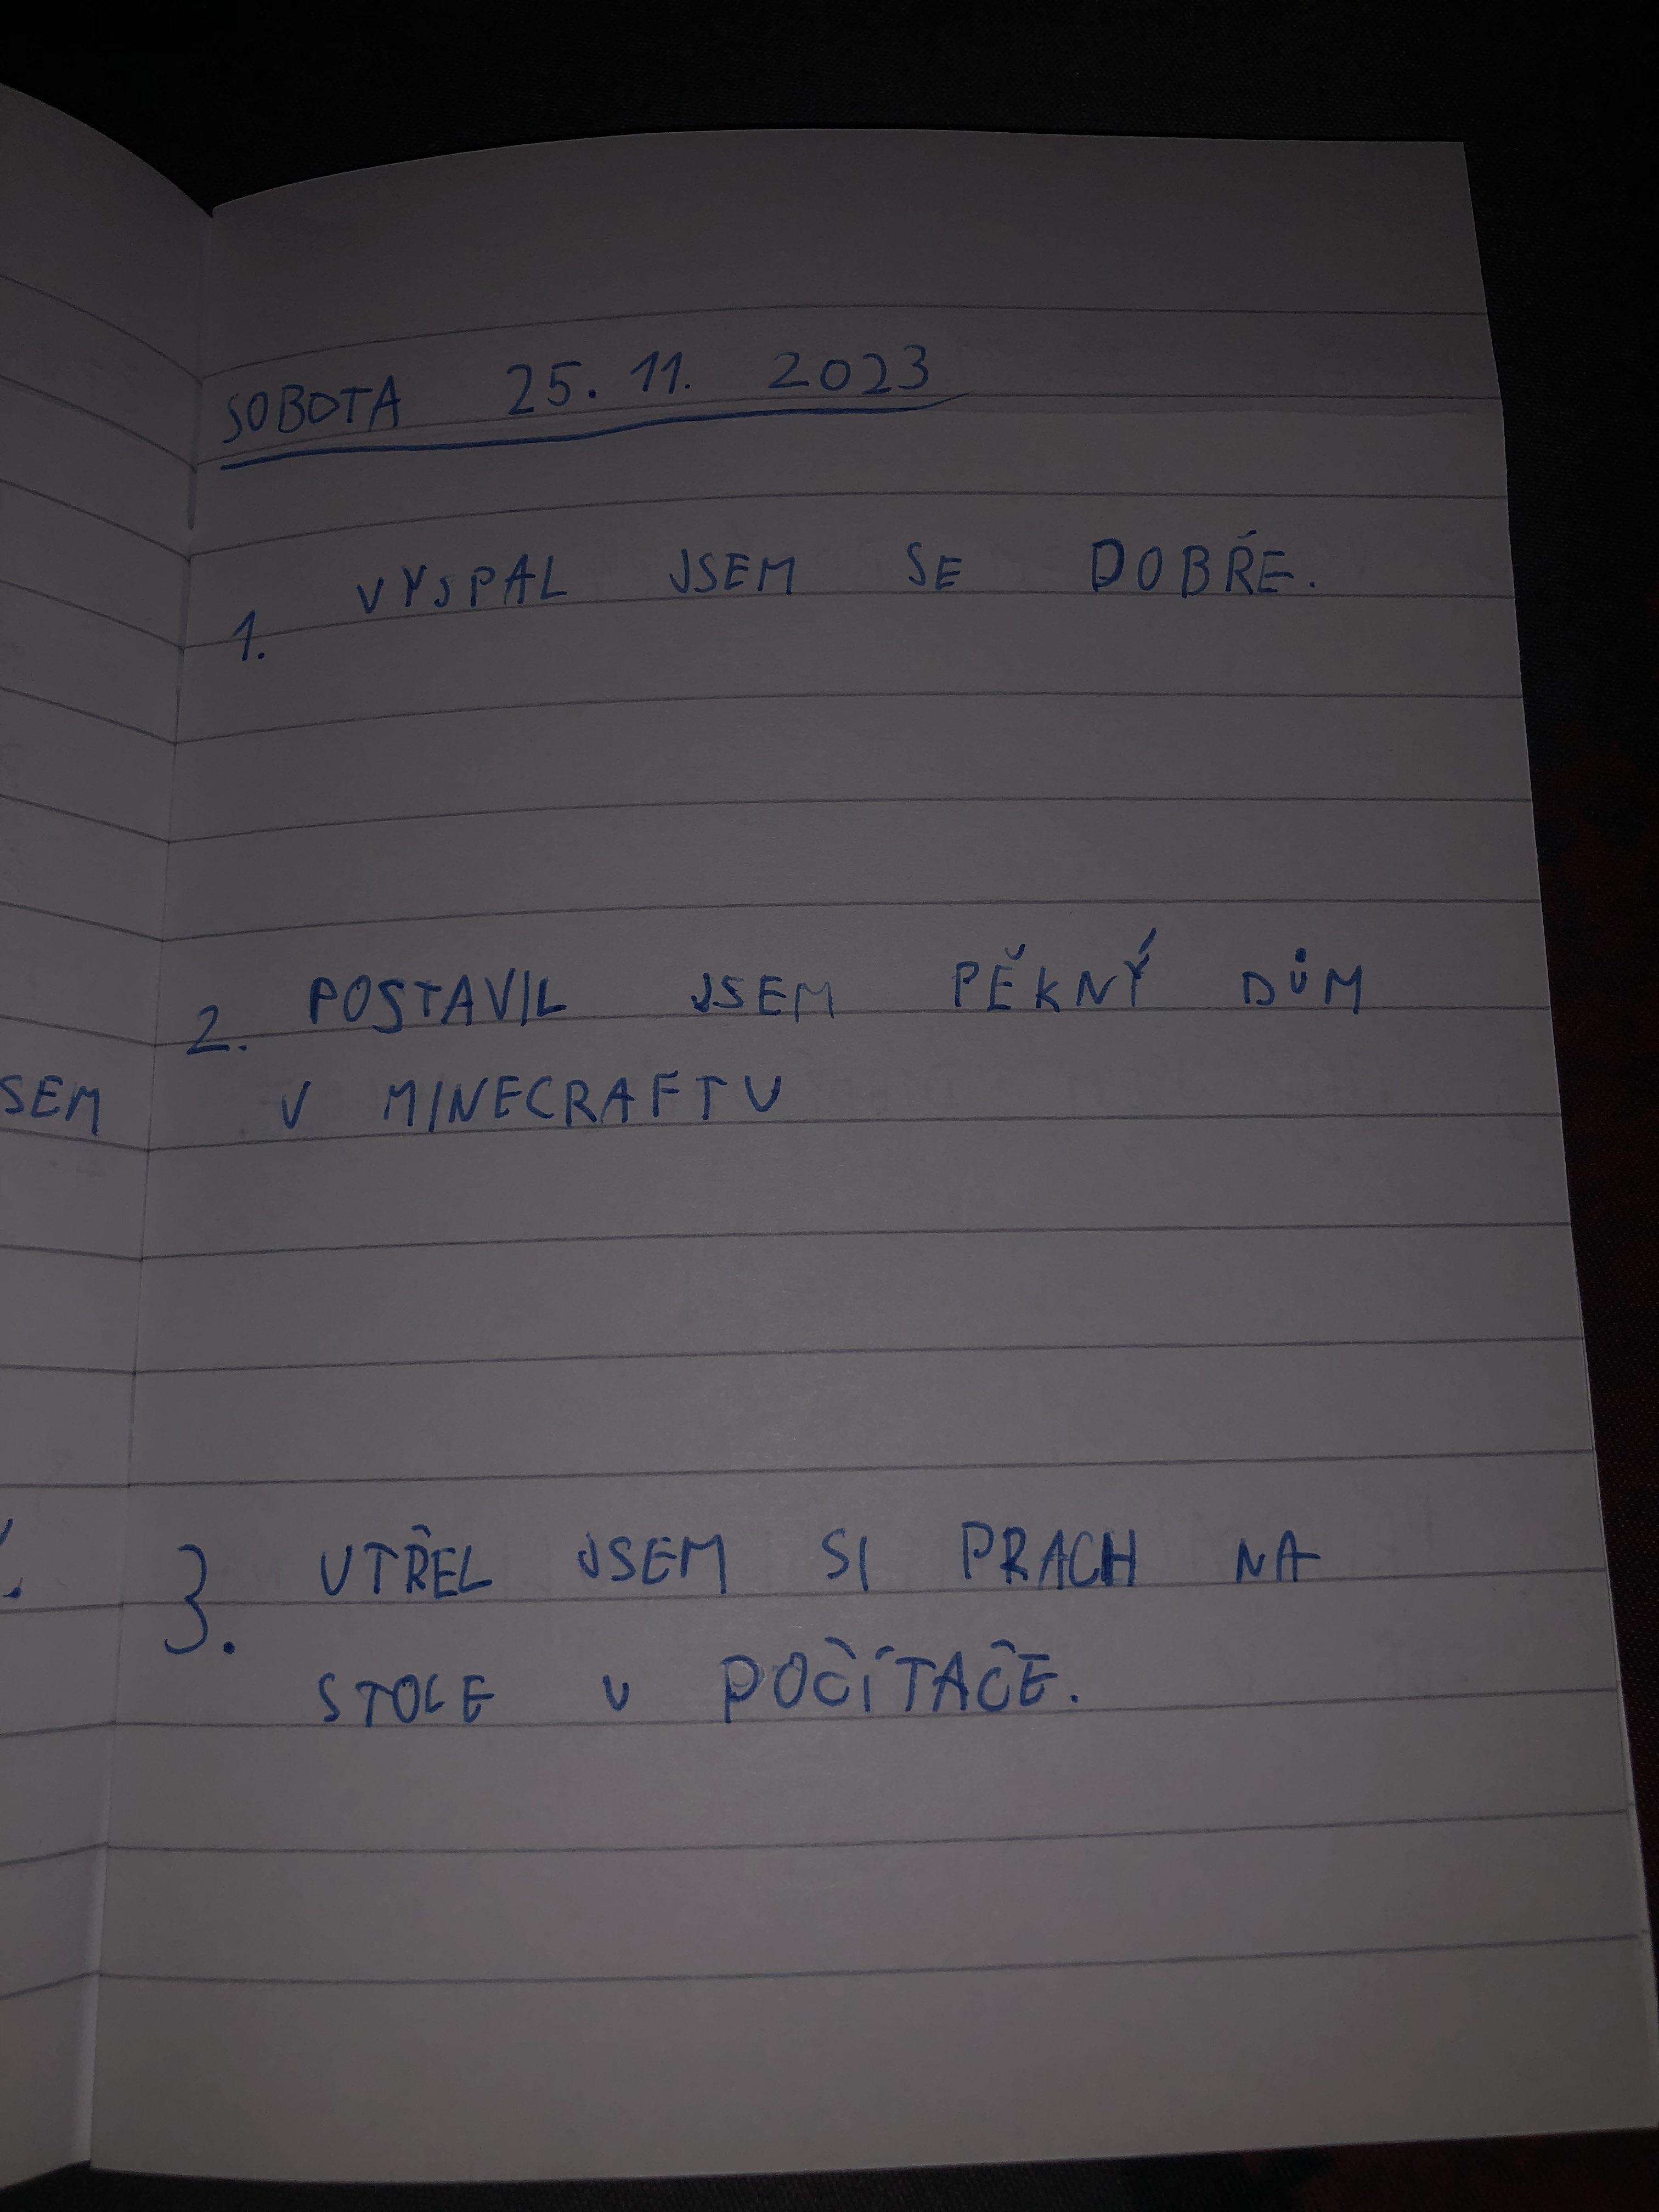 SOBOTA 25. 11. 2023
1. VYSPAL JSEM SE DOBŘE.
2. POSTAVIL JSEM PĚKNÝ DŮM
SEM
V MINECRAFTU
3. UTŘEL JSEM SI PRACH NA
STOLE U POČÍTAČE.